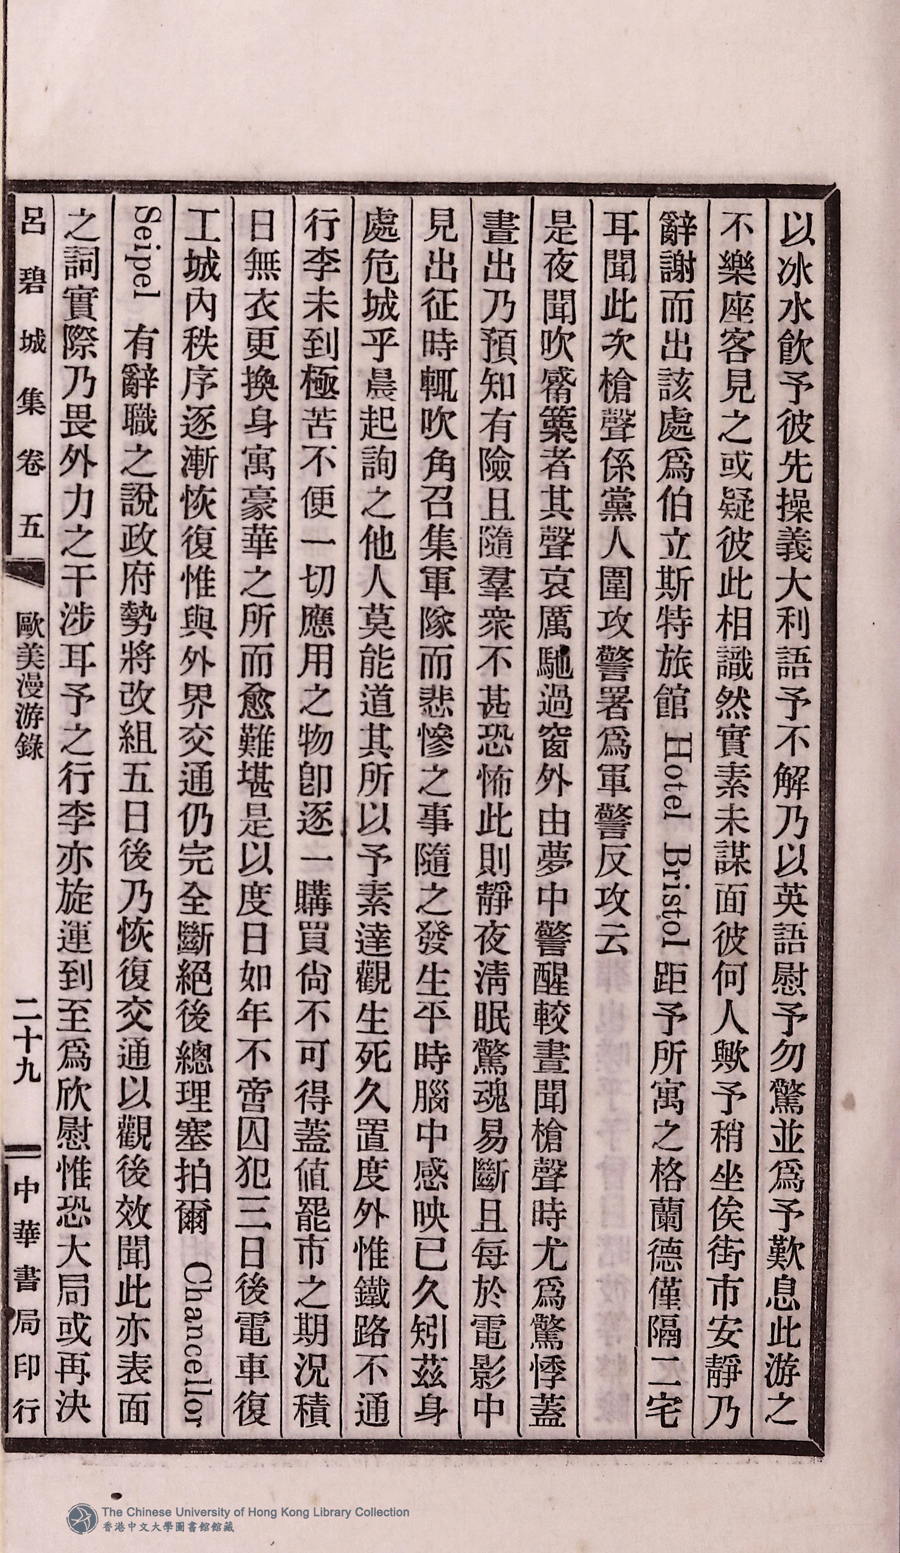 以冰水飮予彼先操義大利語予不解乃以英語慰予勿驚並爲予歎息此游之
不樂座客見之或疑彼此相識然實素未謀面彼何人歟予稍坐俟街市安靜乃
辭謝而出該處爲伯立斯特旅館 Hotel Bristol 距予所寓之格蘭德僅隔二宅
耳聞此次槍聲係黨人圍攻警署爲軍警反攻云
是夜聞吹觱篥者其聲哀厲馳過窗外由夢中警醒較晝聞槍聲時尤爲驚悸蓋
晝出乃預知有險且隨羣衆不甚恐怖此則靜夜淸眠驚魂易斷且每於電影中
見出征時輒吹角召集軍隊而悲慘之事隨之發生平時腦中感映已久矧茲身
處危城乎晨起詢之他人莫能道其所以予素達觀生死久置度外惟鐵路不通
行李未到極苦不便一切應用之物卽逐一購買尙不可得蓋値罷市之期況積
日無衣更換身寓豪華之所而愈難堪是以度日如年不啻囚犯三日後電車復
工城內秩序逐漸恢復惟與外界交通仍完全斷絕後總理塞拍爾 Chancellor
Seipel 有辭職之說政府勢將改組五日後乃恢復交通以觀後效聞此亦表面
之詞實際乃畏外力之干涉耳予之行李亦旋運到至爲欣慰惟恐大局或再決
呂碧城集卷五 歐美漫游錄 二十九 中華書局印行
The Chinese University of Hong Kong Library Collection
香港中文大學圖書館館藏